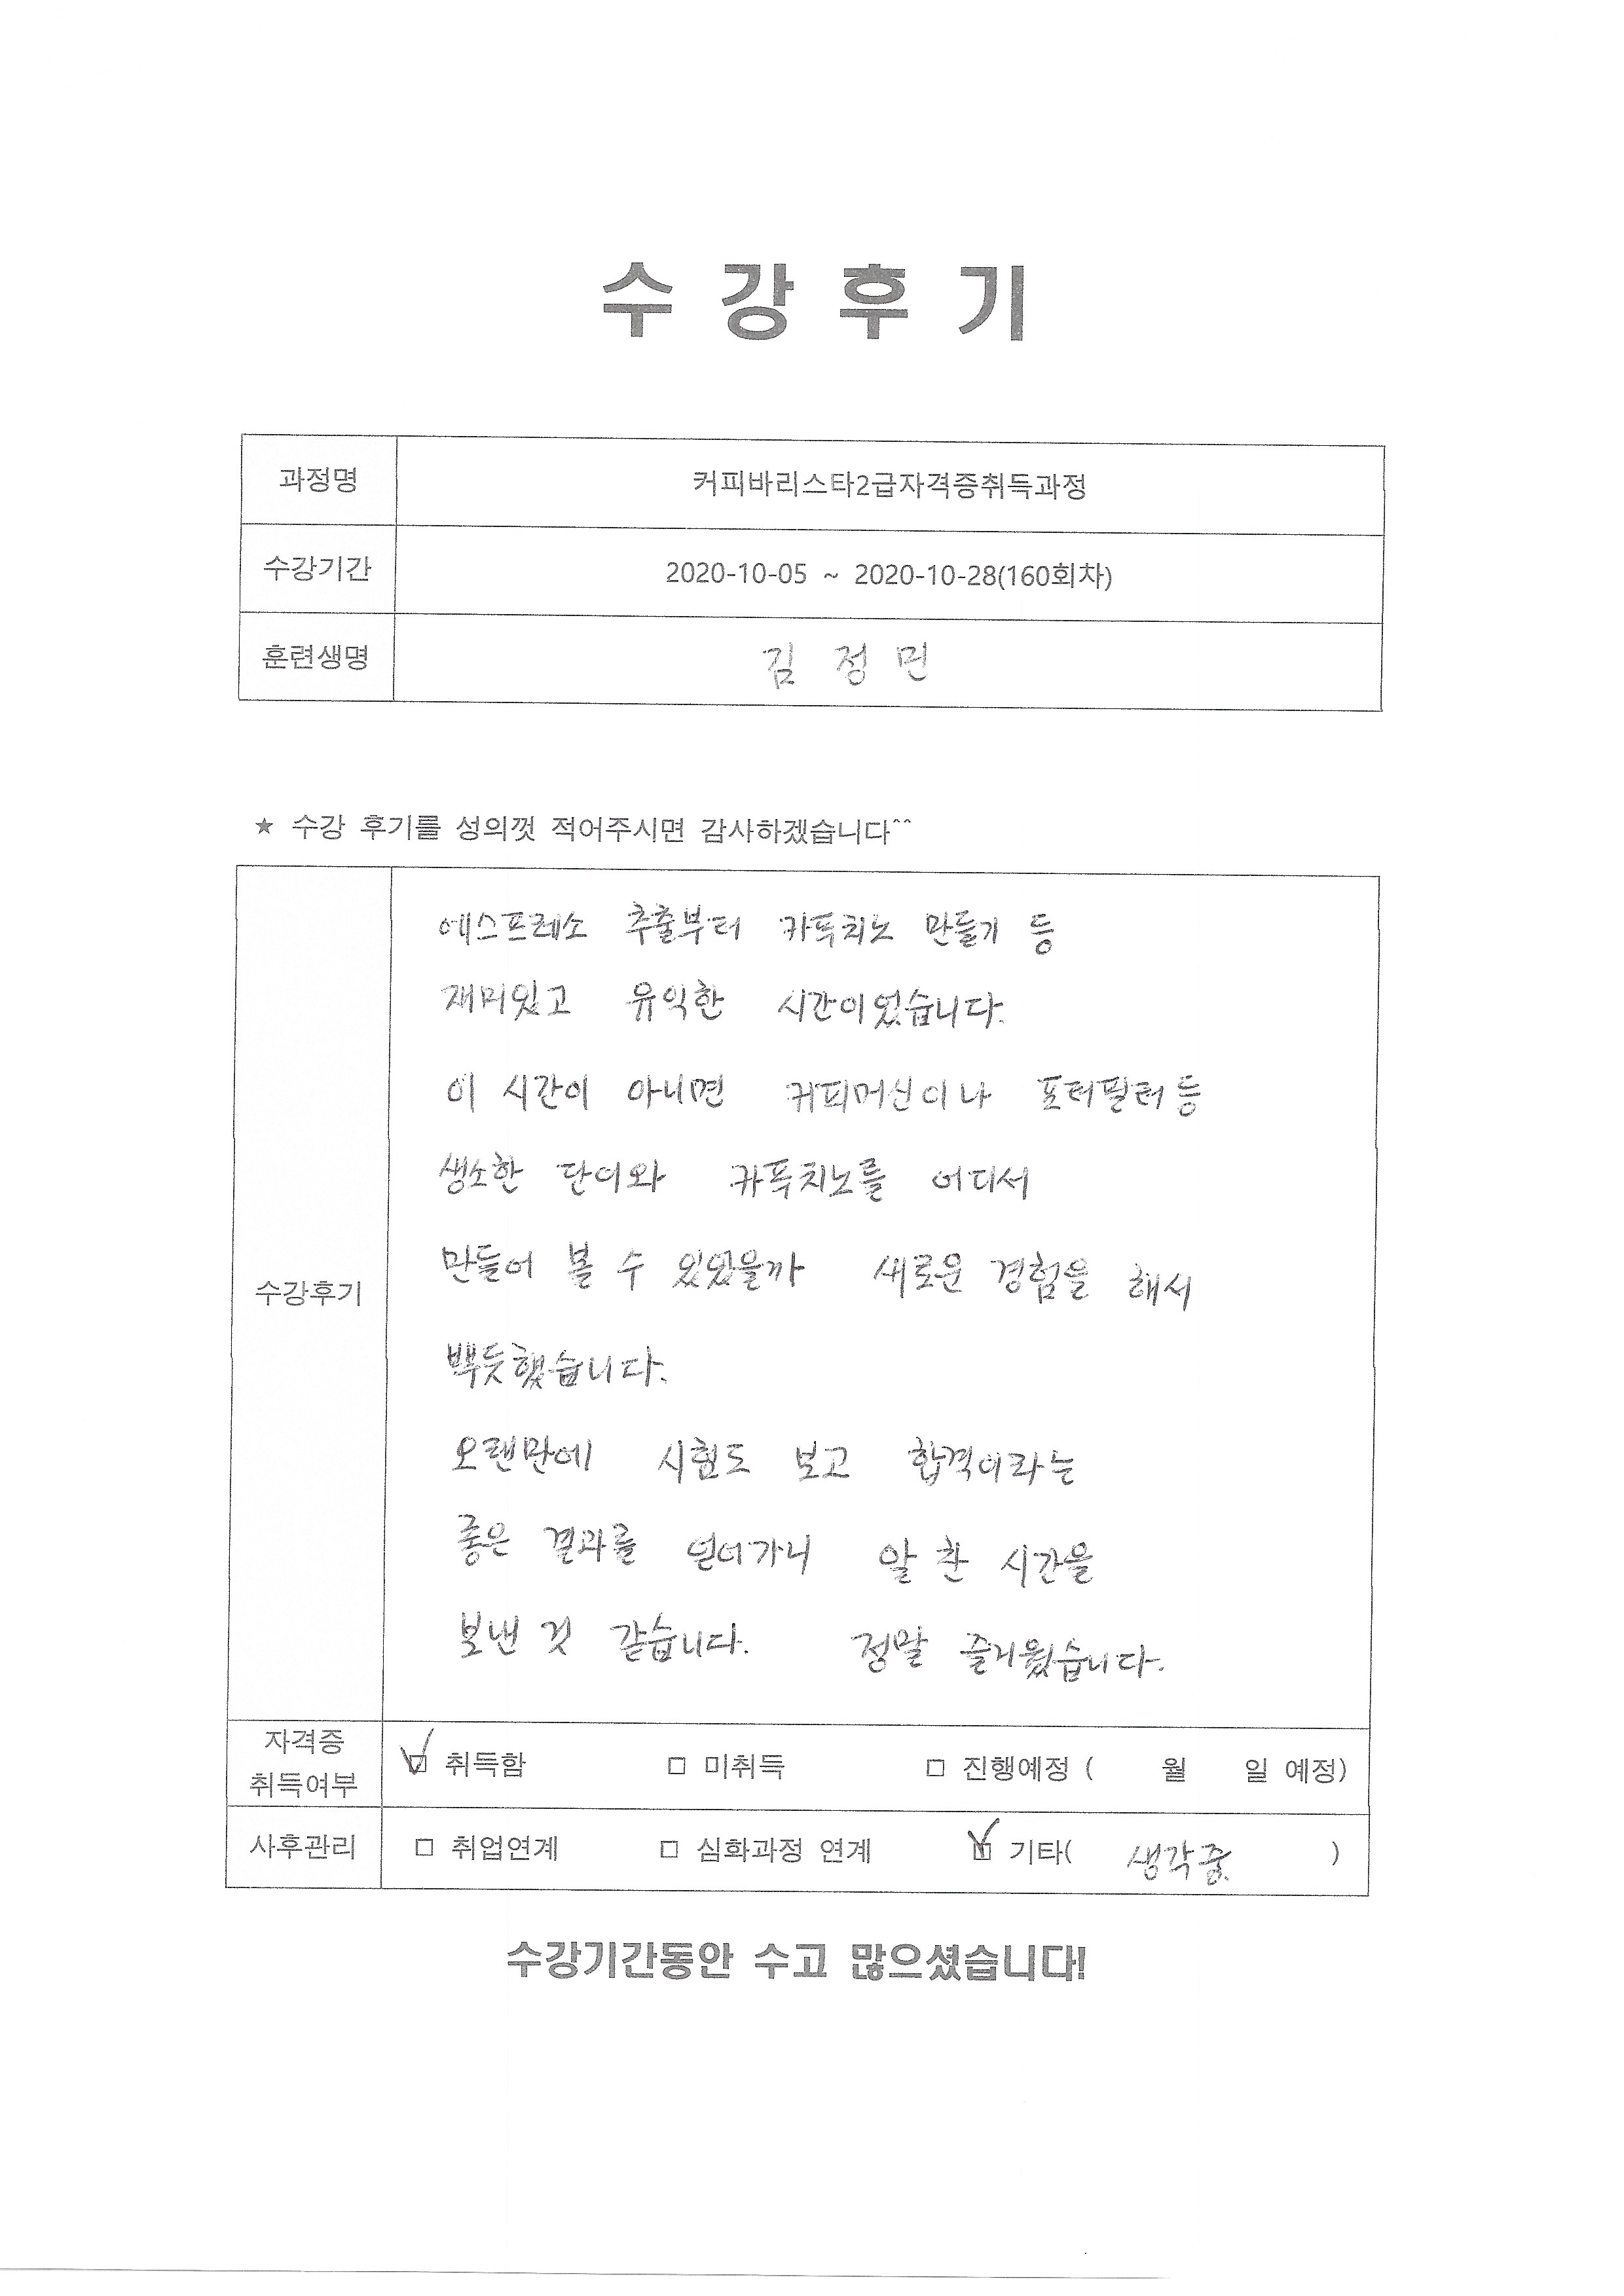 수 강 후 기
과정명 커피바리스타2급자격증취득과정
수강기간 2020-10-05 ~ 2020-10-28(160회차)
훈련생명 김 정 민
★ 수강 후기를 성의껏 적어주시면 감사하겠습니다^^
수강후기
에스프레소 추출부터 카푹치노 만들기 등
재미있고 유익한 시간이었습니다.
이 시간이 아니면 커피머신이나 포터필터등
생소한 단어와 카푹치노를 어디서
만들어 볼 수 있었을까 새로운 경험을 해서
뿌듯했습니다.
오랜만에 시험도 보고 합격이라는
좋은 결과를 얻어가니 알 찬 시간을
보낸 것 같습니다. 정말 즐거웠습니다.
자격증 취득여부 ☑ 취득함 □ 미취득 □ 진행예정 ( 월 일 예정)
사후관리 □ 취업연계 □ 심화과정 연계 ☑ 기타( 생각중. )
수강기간동안 수고 많으셨습니다!